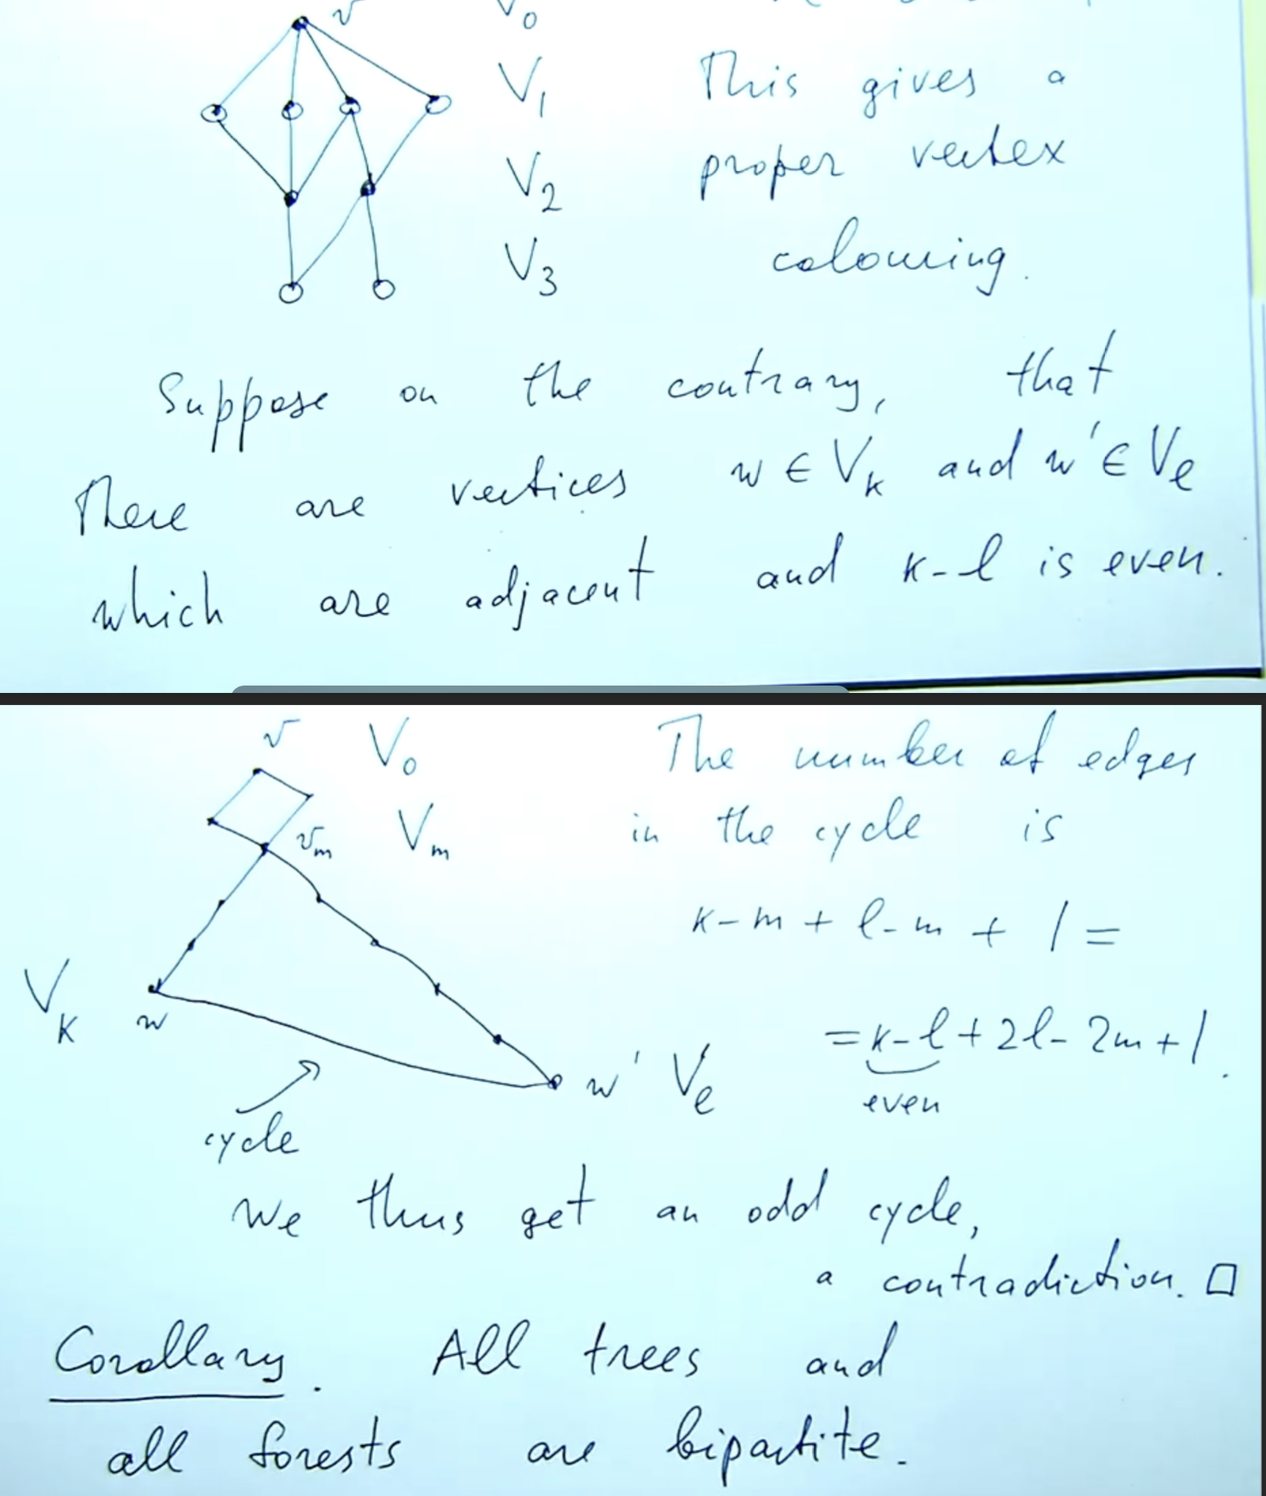 v V₀
V₁ This gives a
V₂ proper vertex
V₃ colouring.
Suppose on the contrary, that
there are vertices w ∈ Vₖ and w' ∈ Vₗ
which are adjacent and k-l is even.
v V₀ The number of edges
vₘ Vₘ in the cycle is
k-m + l-m + 1 =
Vₖ w = k-l + 2l - 2m + 1.
w' Vₗ even
cycle
We thus get an odd cycle,
a contradiction. □
Corollary. All trees and
all forests are bipartite.